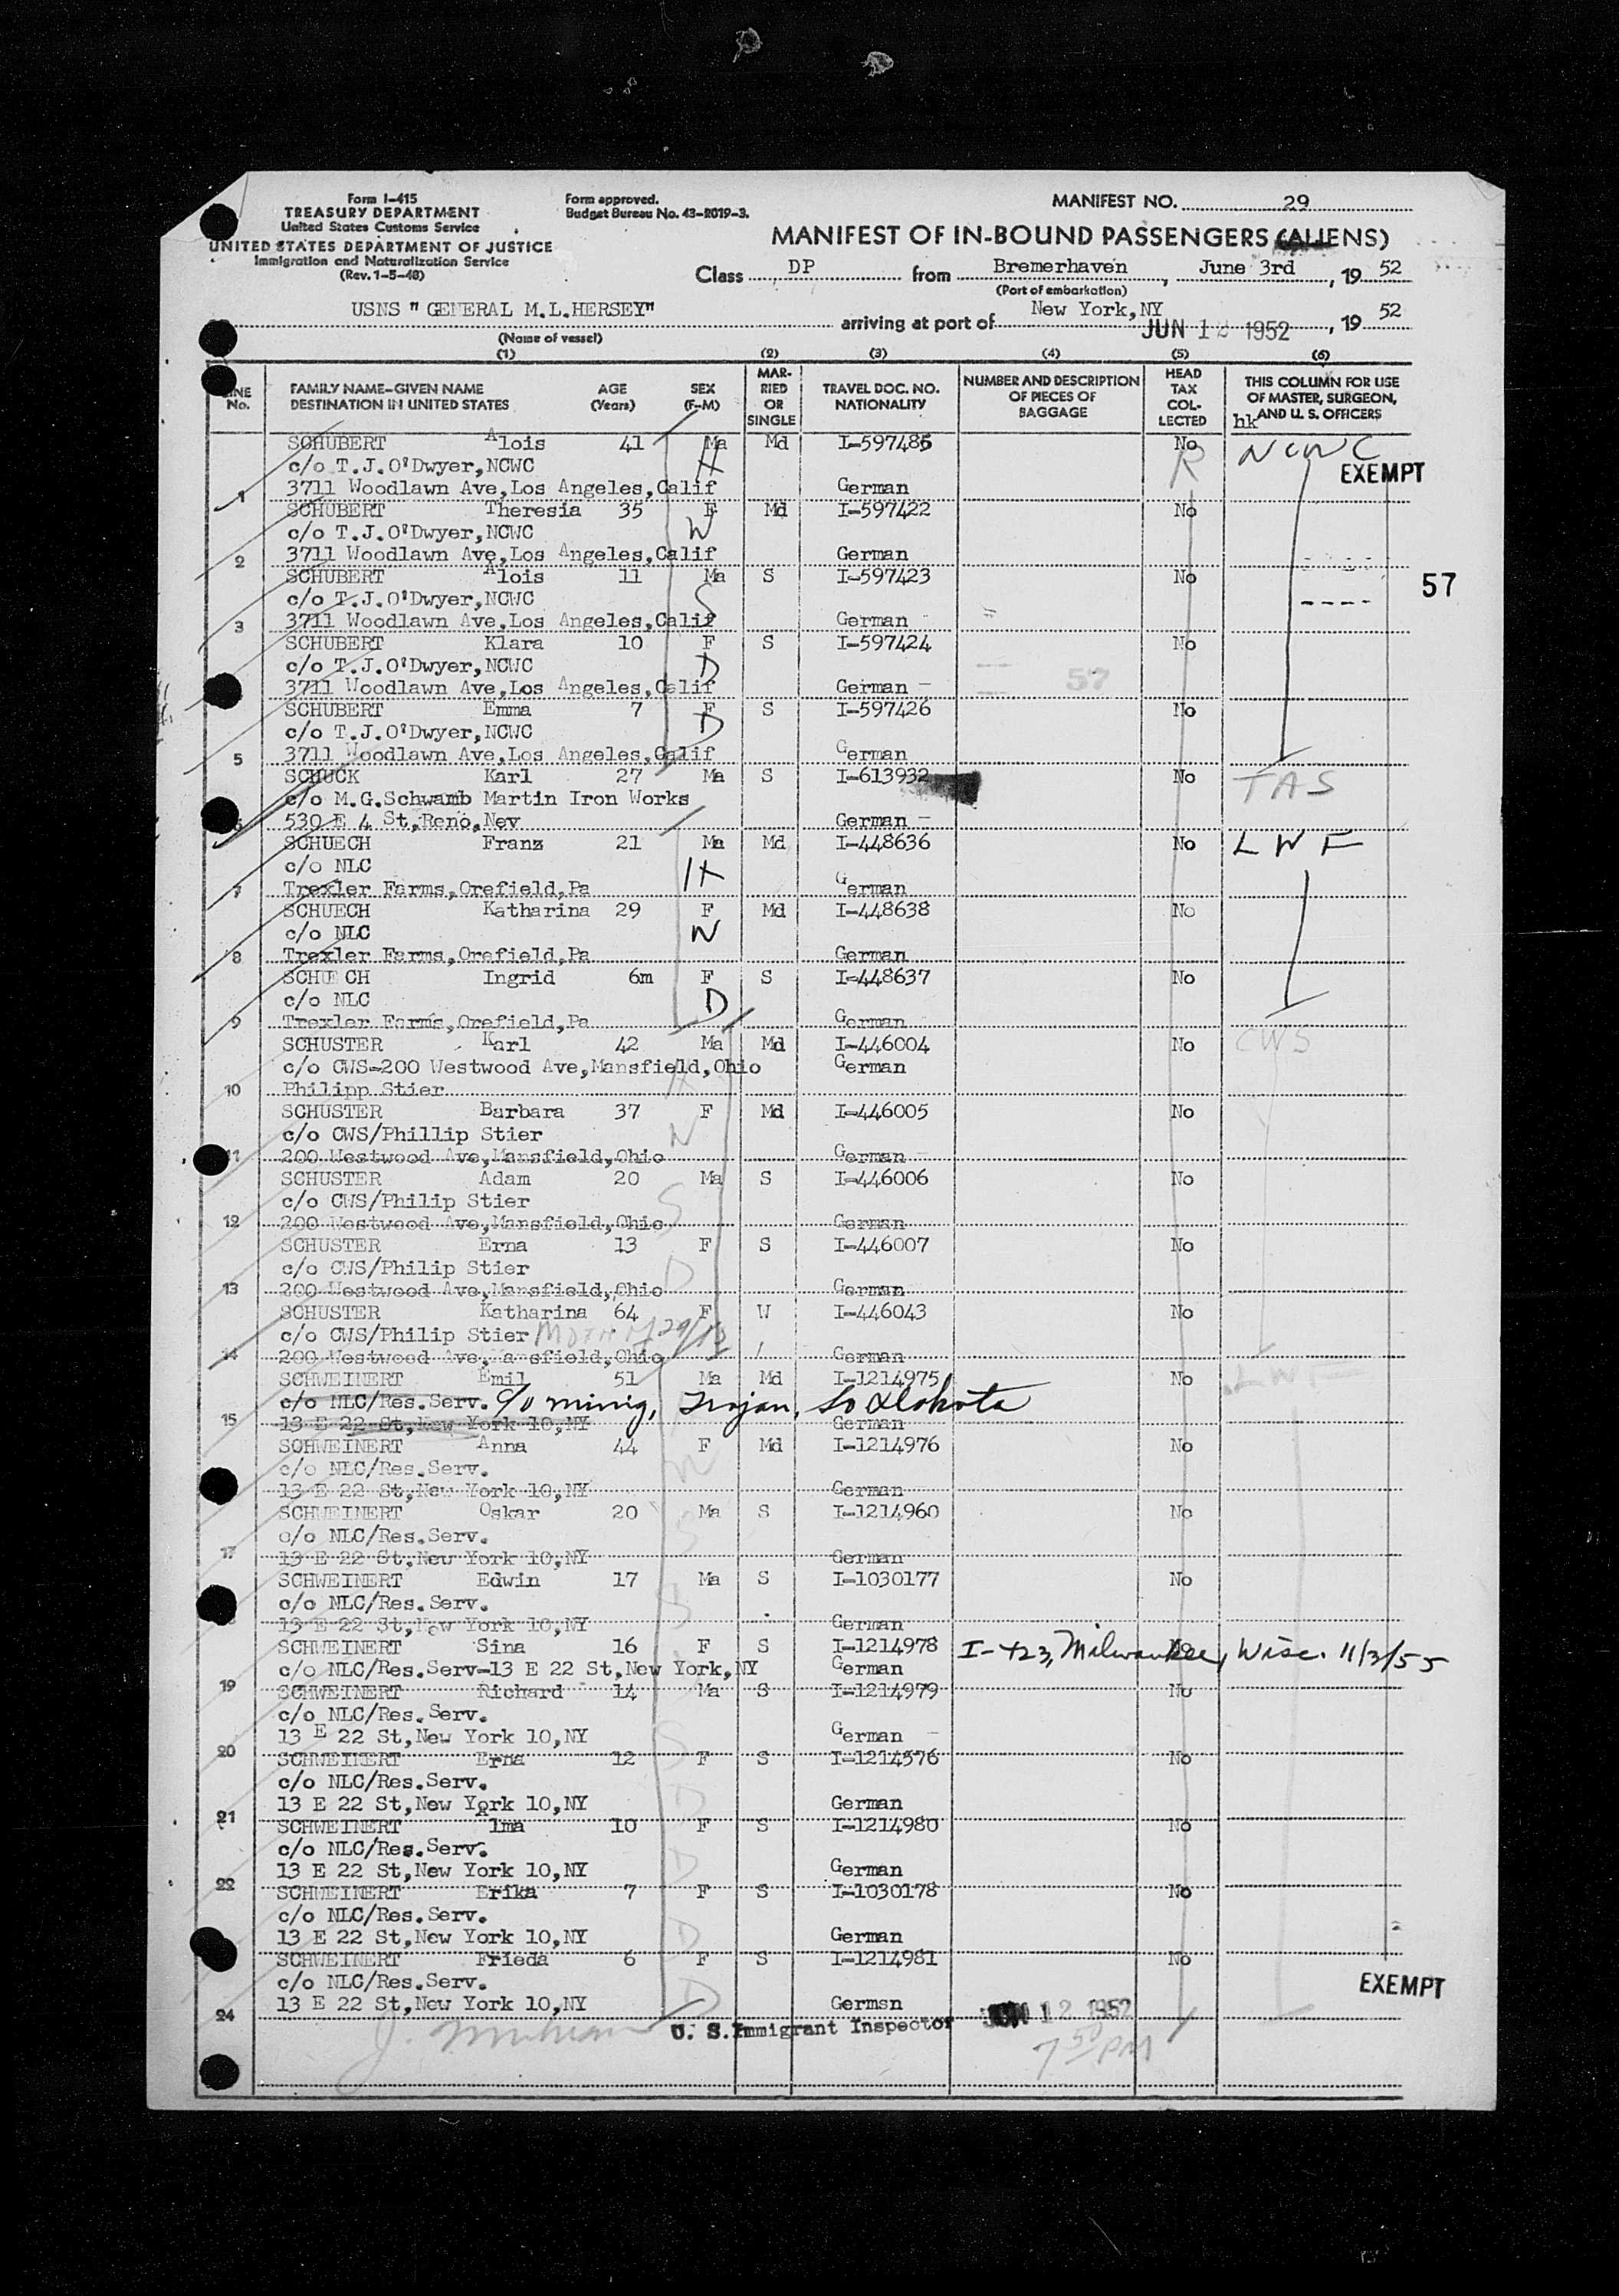 Form I-415
TREASURY DEPARTMENT
United States Customs Service
UNITED STATES DEPARTMENT OF JUSTICE
Immigration and Naturalization Service
(Rev. 1-5-48)
Form approved.
Budget Bureau No. 43-R019-3.
MANIFEST NO. 29
MANIFEST OF IN-BOUND PASSENGERS (ALIENS)
Class DP from Bremerhaven, June 3rd, 1952
(Port of embarkation)
USNS " GENERAL M.L.HERSEY" arriving at port of New York,NY JUN 12 1952, 1952
(Name of vessel)
(1) (2) (3) (4) (5) (6)
LINE No. FAMILY NAME-GIVEN NAME DESTINATION IN UNITED STATES AGE (Years) SEX (F-M) MARRIED OR SINGLE TRAVEL DOC. NO. NATIONALITY NUMBER AND DESCRIPTION OF PIECES OF BAGGAGE HEAD TAX COLLECTED THIS COLUMN FOR USE OF MASTER, SURGEON, AND U. S. OFFICERS
hk
SCHUBERT Alois 41 Ma Md I-597485 No NCWC
c/o T.J.O'Dwyer,NCWC H R EXEMPT
1 3711 Woodlawn Ave,Los Angeles,Calif German
SCHUBERT Theresia 35 F Md I-597422 No
c/o T.J.O'Dwyer,NCWC W
2 3711 Woodlawn Ave,Los Angeles,Calif German
SCHUBERT Alois 11 Ma S I-597423 No 57
c/o T.J.O'Dwyer,NCWC S
3 3711 Woodlawn Ave,Los Angeles,Calif German
SCHUBERT Klara 10 F S I-597424 No
c/o T.J.O'Dwyer,NCWC D
3711 Woodlawn Ave,Los Angeles,Calif German 57
SCHUBERT Emma 7 F S I-597426 No
c/o T.J.O'Dwyer,NCWC D
5 3711 Woodlawn Ave,Los Angeles,Calif German
SCHUCK Karl 27 Ma S I-613932 No TAS
c/o M.G.Schwamb Martin Iron Works
6 530 E 4 St,Reno,Nev German
SCHUECH Franz 21 Ma Md I-448636 No LWF
c/o NLC H
7 Trexler Farms,Orefield,Pa German
SCHUECH Katharina 29 F Md I-448638 No
c/o NLC W
8 Trexler Farms,Orefield,Pa German
SCHUECH Ingrid 6m F S I-448637 No
c/o NLC D
9 Trexler Farms,Orefield,Pa German
SCHUSTER Karl 42 Ma Md I-446004 No CWS
c/o CWS-200 Westwood Ave,Mansfield,Ohio German
10 Philipp Stier H
SCHUSTER Barbara 37 F Md I-446005 No
c/o CWS/Phillip Stier W
11 200 Westwood Ave,Mansfield,Ohio German
SCHUSTER Adam 20 Ma S I-446006 No
c/o CWS/Philip Stier S
12 200 Westwood Ave,Mansfield,Ohio German
SCHUSTER Erna 13 F S I-446007 No
c/o CWS/Philip Stier D
13 200 Westwood Ave,Mansfield,Ohio German
SCHUSTER Katharina 64 F W I-446043 No
c/o CWS/Philip Stier
14 200 Westwood Ave,Ma sfield,Ohio German
SCHWEINERT Emil 51 Ma Md I-1214975 No LWF
c/o NLC/Res.Serv. c/o minig, Trojan, So Dakota
15 13 E 22 St,New York 10,NY German
SCHWEINERT Anna 44 F Md I-1214976 No
c/o NLC/Res.Serv. W
13 E 22 St,New York 10,NY German
SCHWEINERT Oskar 20 Ma S I-1214960 No
c/o NLC/Res.Serv. S
17 13 E 22 St,New York 10,NY German
SCHWEINERT Edwin 17 Ma S I-1030177 No
c/o NLC/Res.Serv. S
13 E 22 St,New York 10,NY German
SCHWEINERT Sina 16 F S I-1214978 No I-423, Milwaukee, Wisc. 11/3/55
19 c/o NLC/Res.Serv-13 E 22 St,New York,NY German
SCHWEINERT Richard 14 Ma S I-1214979 No
c/o NLC/Res.Serv.
20 13 E 22 St,New York 10,NY S German
SCHWEINERT Erna 12 F S I-1214576 No
c/o NLC/Res.Serv.
21 13 E 22 St,New York 10,NY D German
SCHWEINERT Alma 10 F S I-1214980 No
c/o NLC/Res.Serv.
22 13 E 22 St,New York 10,NY D German
SCHWEINERT Erika 7 F S I-1030178 No
c/o NLC/Res.Serv.
13 E 22 St,New York 10,NY D German
SCHWEINERT Frieda 6 F S I-1214981 No
c/o NLC/Res.Serv. EXEMPT
24 13 E 22 St,New York 10,NY D Germsn
U. S. Immigrant Inspector JUN 12 1952
7 50 PM